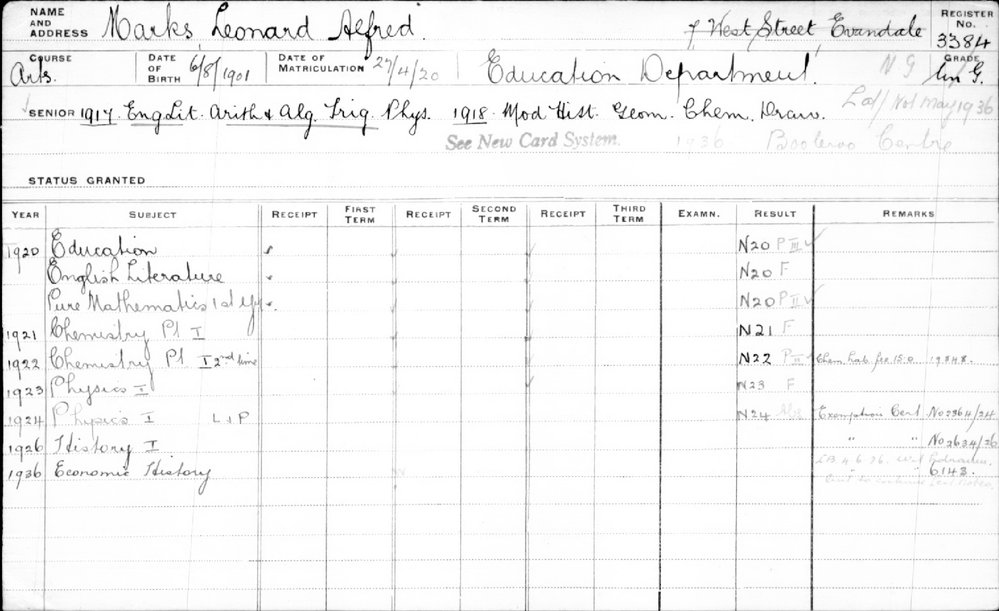 NAME AND ADDRESS Marks, Leonard Alfred. 7 West Street, Evandale REGISTER NO. 3384
COURSE Arts. DATE OF BIRTH 6/8/1901 DATE OF MATRICULATION 27/4/20 Education Department, N G GRADE Un G.
SENIOR 1917. Eng Lit. Arith & Alg. Trig. Phys. 1918. Mod Hist. Geom. Chem. Draw. May 1936
See New Card System. 1936 Booleroo Centre
STATUS GRANTED
YEAR SUBJECT RECEIPT FIRST TERM RECEIPT SECOND TERM RECEIPT THIRD TERM EXAMN. RESULT REMARKS
1920 Education N20 P III ✓
English Literature N20 F
Pure Mathematics 1st N20 P II ✓
1921 Chemistry Pt I N21 F
1922 Chemistry Pt I 2nd time N22 P II Chem. Lab. fee 15.0 19348.
1923 Physics I N23 F
1924 Physics I L+P N24 Abs Exemption Cert No 2364/24
1926 History I " " No 2634/26
1936 Economic History " " 6143.